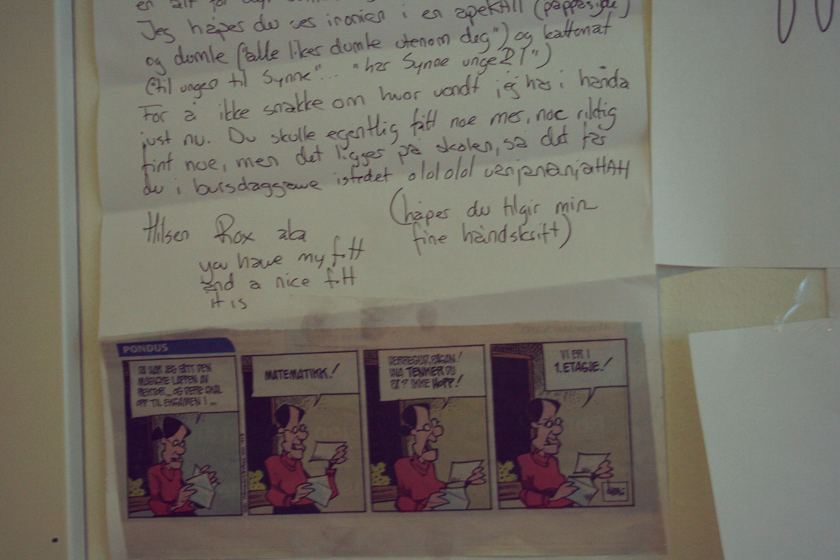 en alt for
Jeg håper du ser ironien i en apekatt (pappesøje)
og dumle ("alle liker dumle utenom deg") og kattemat
(til ungen til Synne"... "har Synne unge?!")
For å ikke snakke om hvor vondt jeg har i hånda
just nu. Du skulle egentlig fått noe mer, noe riktig
fint noe, men det ligger på skolen, så det får
du i bursdaggave istedet olololol
Hilsen Rox aka
you have my
and a nice
it is
(håper du tilgir min
fine håndskrift)
PONDUS
DA HAR JEG FÅTT DEN
MAGISKE LAPPEN AV
REKTOR... OG DERE SKAL
OPP TIL EKSAMEN I ...
MATEMATIKK!
HERREGUD, HÅKON!
HVA TENKER DU
PÅ?! IKKE HOPP!
VI ER I
1. ETASJE!